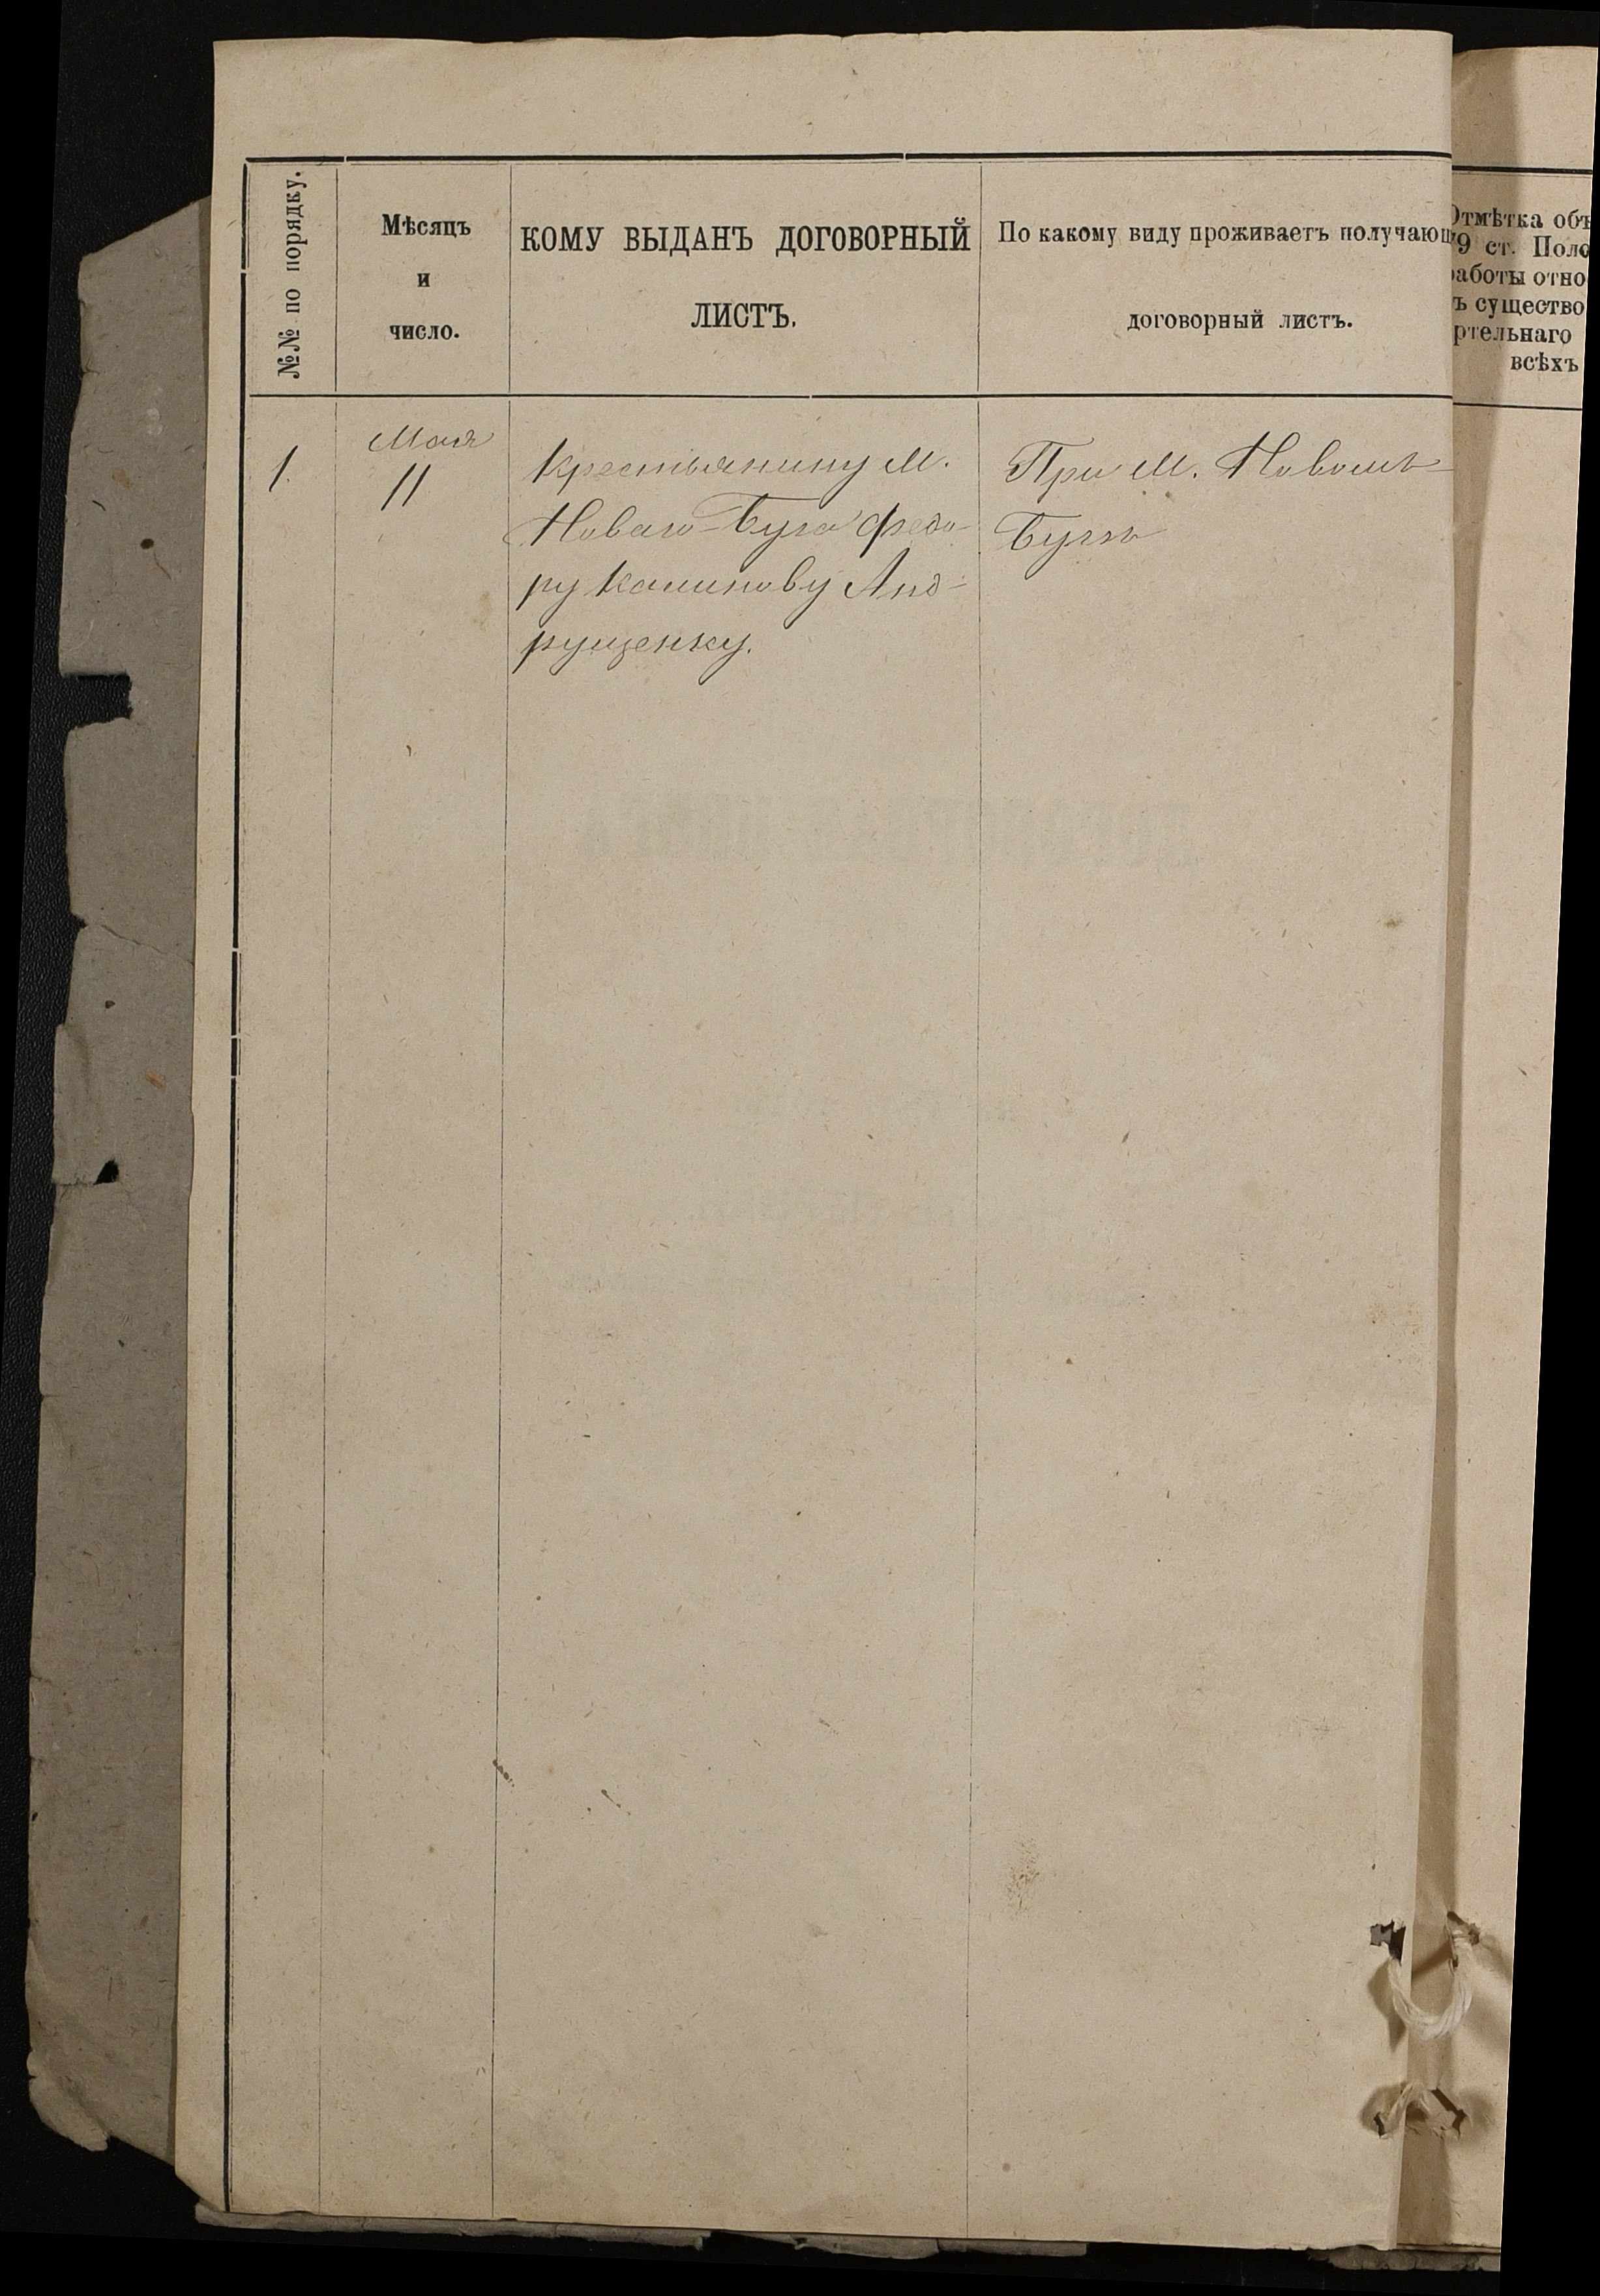 №№ по порядку.
Мѣсяцъ
и
число.
КОМУ ВЫДАНЪ ДОГОВОРНЫЙ
ЛИСТЪ.
По какому виду проживаетъ получающ
договорный листъ.
Отмѣтка объ
79 ст. Поло
работы отно
ъ существо
ртельнаго
всѣхъ
1.
Мая
11
Крестьянину М.
Новаго-Буга Федо-
ру Калинову Анд-
рущенку.
При М. Новомъ
Бугѣ